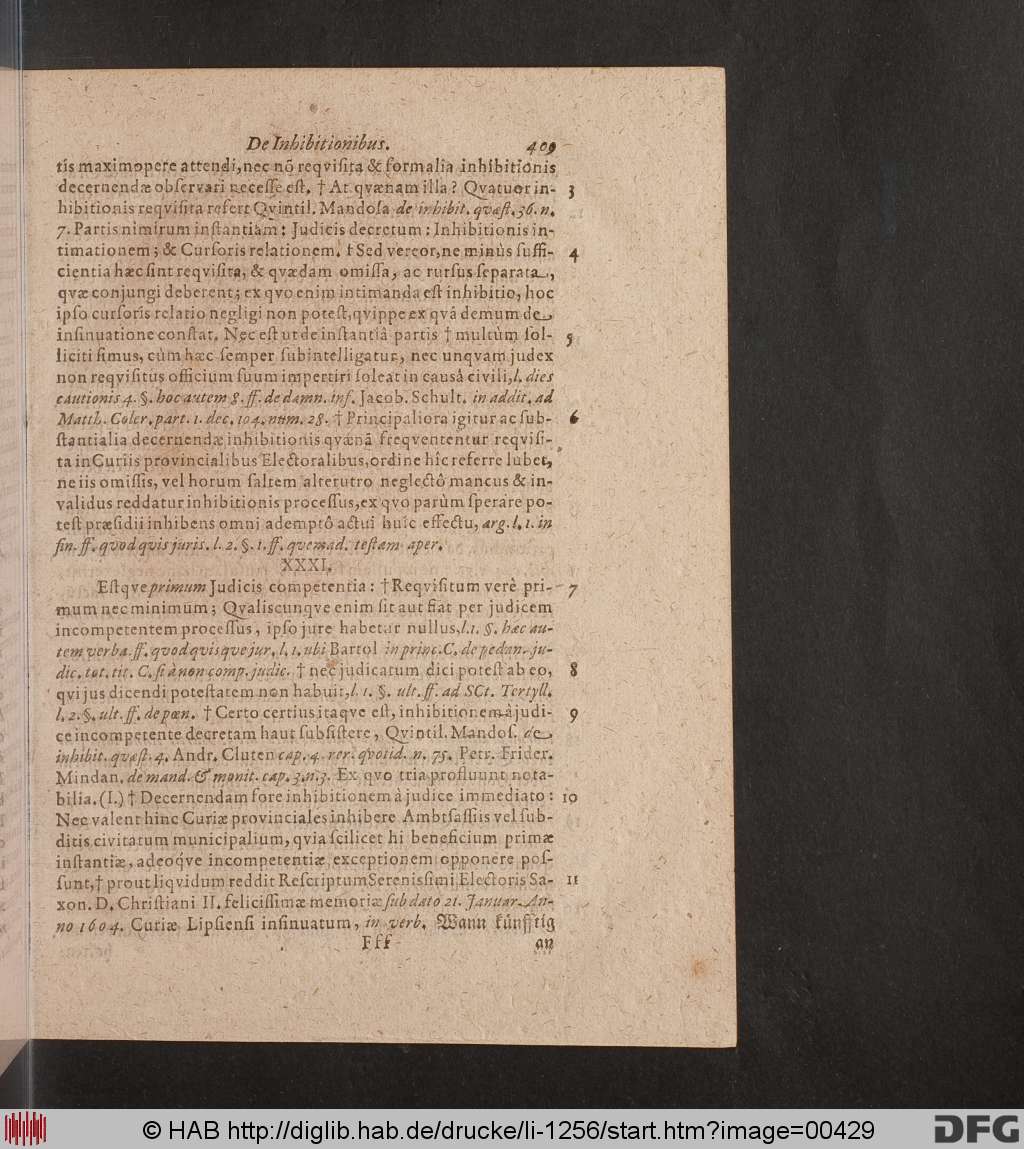 De Inhibitionibus. 409
tis maximopere attendi, nec nō reqvisita & formalia inhibitionis
decernendæ observari necesse est. † At qvænam illa? Qvatuor in- 3
hibitionis reqvisita refert Qvintil. Mandosa de inhibit. quæst. 36. n.
7. Partis nimirum instantiam: Judicis decretum: Inhibitionis in-
timationem; & Cursoris relationem. † Sed vereor, ne minùs suffi- 4
cientia hæc sint reqvisita, & qvædam omissa, ac rursus separata,
qvæ conjungi deberent; ex qvo enim intimanda est inhibitio, hoc
ipso cursoris relatio negligi non potest, qvippe ex qvâ demum de
insinuatione constat. Nec est ut de instantiâ partis † multùm sol- 5
liciti simus, cùm hæc semper subintelligatur, nec unqvam judex
non reqvisitus officium suum impertiri soleat in causâ civili, l. dies
cautionis 4. §. hoc autem 8. ff. de damn. inf. Jacob. Schult. in addit. ad
Matth. Coler. part. 1. dec. 104. num. 28. † Principaliora igitur ac sub- 6
stantialia decernendæ inhibitionis qvænā freqvententur reqvisi-
ta in Curiis provincialibus Electoralibus, ordine hîc referre lubet,
ne iis omissis, vel horum saltem alterutro neglectô mancus & in-
validus reddatur inhibitionis processus, ex qvo parùm sperare po-
test præsidii inhibens omni ademptô actui huic effectu, arg. l. 1. in
fin. ff. quod quis juris. l. 2. §. 1. ff. quemad. testam aper.
XXXI.
Estqve primum Judicis competentia: † Reqvisitum verè pri- 7
mum nec minimum; Qvaliscunqve enim sit aut fiat per judicem
incompetentem processus, ipso jure habetur nullus, l. 1. §. hæc au-
tem verba. ff. quod quisque jur. l. 1. ubi Bartol in princ. C. de pedan. ju-
dic. tot. tit. C. si à non comp. judic. † nec judicatum dici potest ab eo, 8
qvi jus dicendi potestatem non habuit, l. 1. §. ult. ff. ad SCt. Tertyll.
l. 2. §. ult. ff. de pœn. † Certo certius itaqve est, inhibitionem à judi- 9
ce incompetente decretam haut subsistere, Qvintil. Mandos. de
inhibit. quæst. 4. Andr. Cluten cap. 4. rer. quotid. n. 75. Petr. Frider.
Mindan. de mand. & monit. cap. 3. n. 3. Ex qvo tria profluunt nota-
bilia. (I.) † Decernendam fore inhibitionem à judice immediato: 10
Nec valent hinc Curiæ provinciales inhibere Ambtsassiis vel sub-
ditis civitatum municipalium, qvia scilicet hi beneficium primæ
instantiæ, adeoqve incompetentiæ exceptionem opponere pos-
sunt, † prout liqvidum reddit Rescriptum Serenissimi Electoris Sa- 11
xon. D. Christiani II. felicissimæ memoriæ sub dato 21. Januar. An-
no 1604. Curiæ Lipsiensi insinuatum, in verb. Wann künfftig
Fff an
© HAB http://diglib.hab.de/drucke/li-1256/start.htm?image=00429
DFG